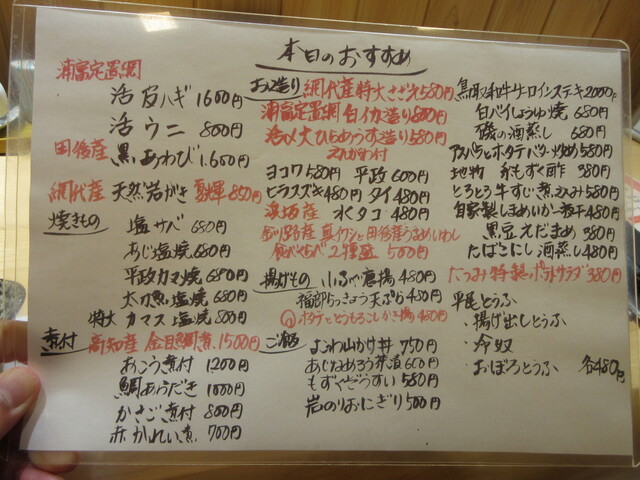 本日のおすすめ
浦富定置網
活皮ハギ 1600円
活ウニ 800円
田後産 黒あわび 1.600円
網代産 天然岩がき 夏輝 850円
焼きもの 塩サバ 680円
あじ塩焼 680円
平政カマ焼 680円
太刀魚塩焼 680円
特大カマス塩焼 800円
煮付 高知産 金目鯛煮 1500円
あこう煮付 1200円
鯛あらだき 1000円
かさご煮付 800円
赤かれい煮 700円
お造り 網代産特大さざえ 580円
浦富定置網 白イカ造り 800円
活〆大ひらめうす造り 580円
えんがわ付
ヨコワ 580円 平政 600円
ヒラスズキ 480円 タイ 480円
浜坂産 水タコ 480円
釧路産 真イワシと田後産うるめいわし
食べくらべ2種盛 500円
揚げもの 小ふぐ唐揚 480円
福部らっきょう天ぷら 480円
ホタテととうもろこしかき揚 480円
ご飯 よこわ山かけ丼 750円
あじなめろう茶漬 600円
もずくぞうすい 580円
岩のりおにぎり 500円
鳥取和牛サーロインステーキ 2000円
白バイしょうゆ焼 680円
磯の酒蒸し 680円
アスパラとホタテバター炒め 580円
地物 糸もずく酢 380円
とろとろ牛すじ煮込み 580円
自家製しまめいか一夜干 480円
黒豆えだまめ 380円
たばこにし酒蒸し 480円
たつみ特製ポテトサラダ 380円
平尾とうふ
・揚げ出しとうふ
・冷奴
・おぼろとうふ 各480円